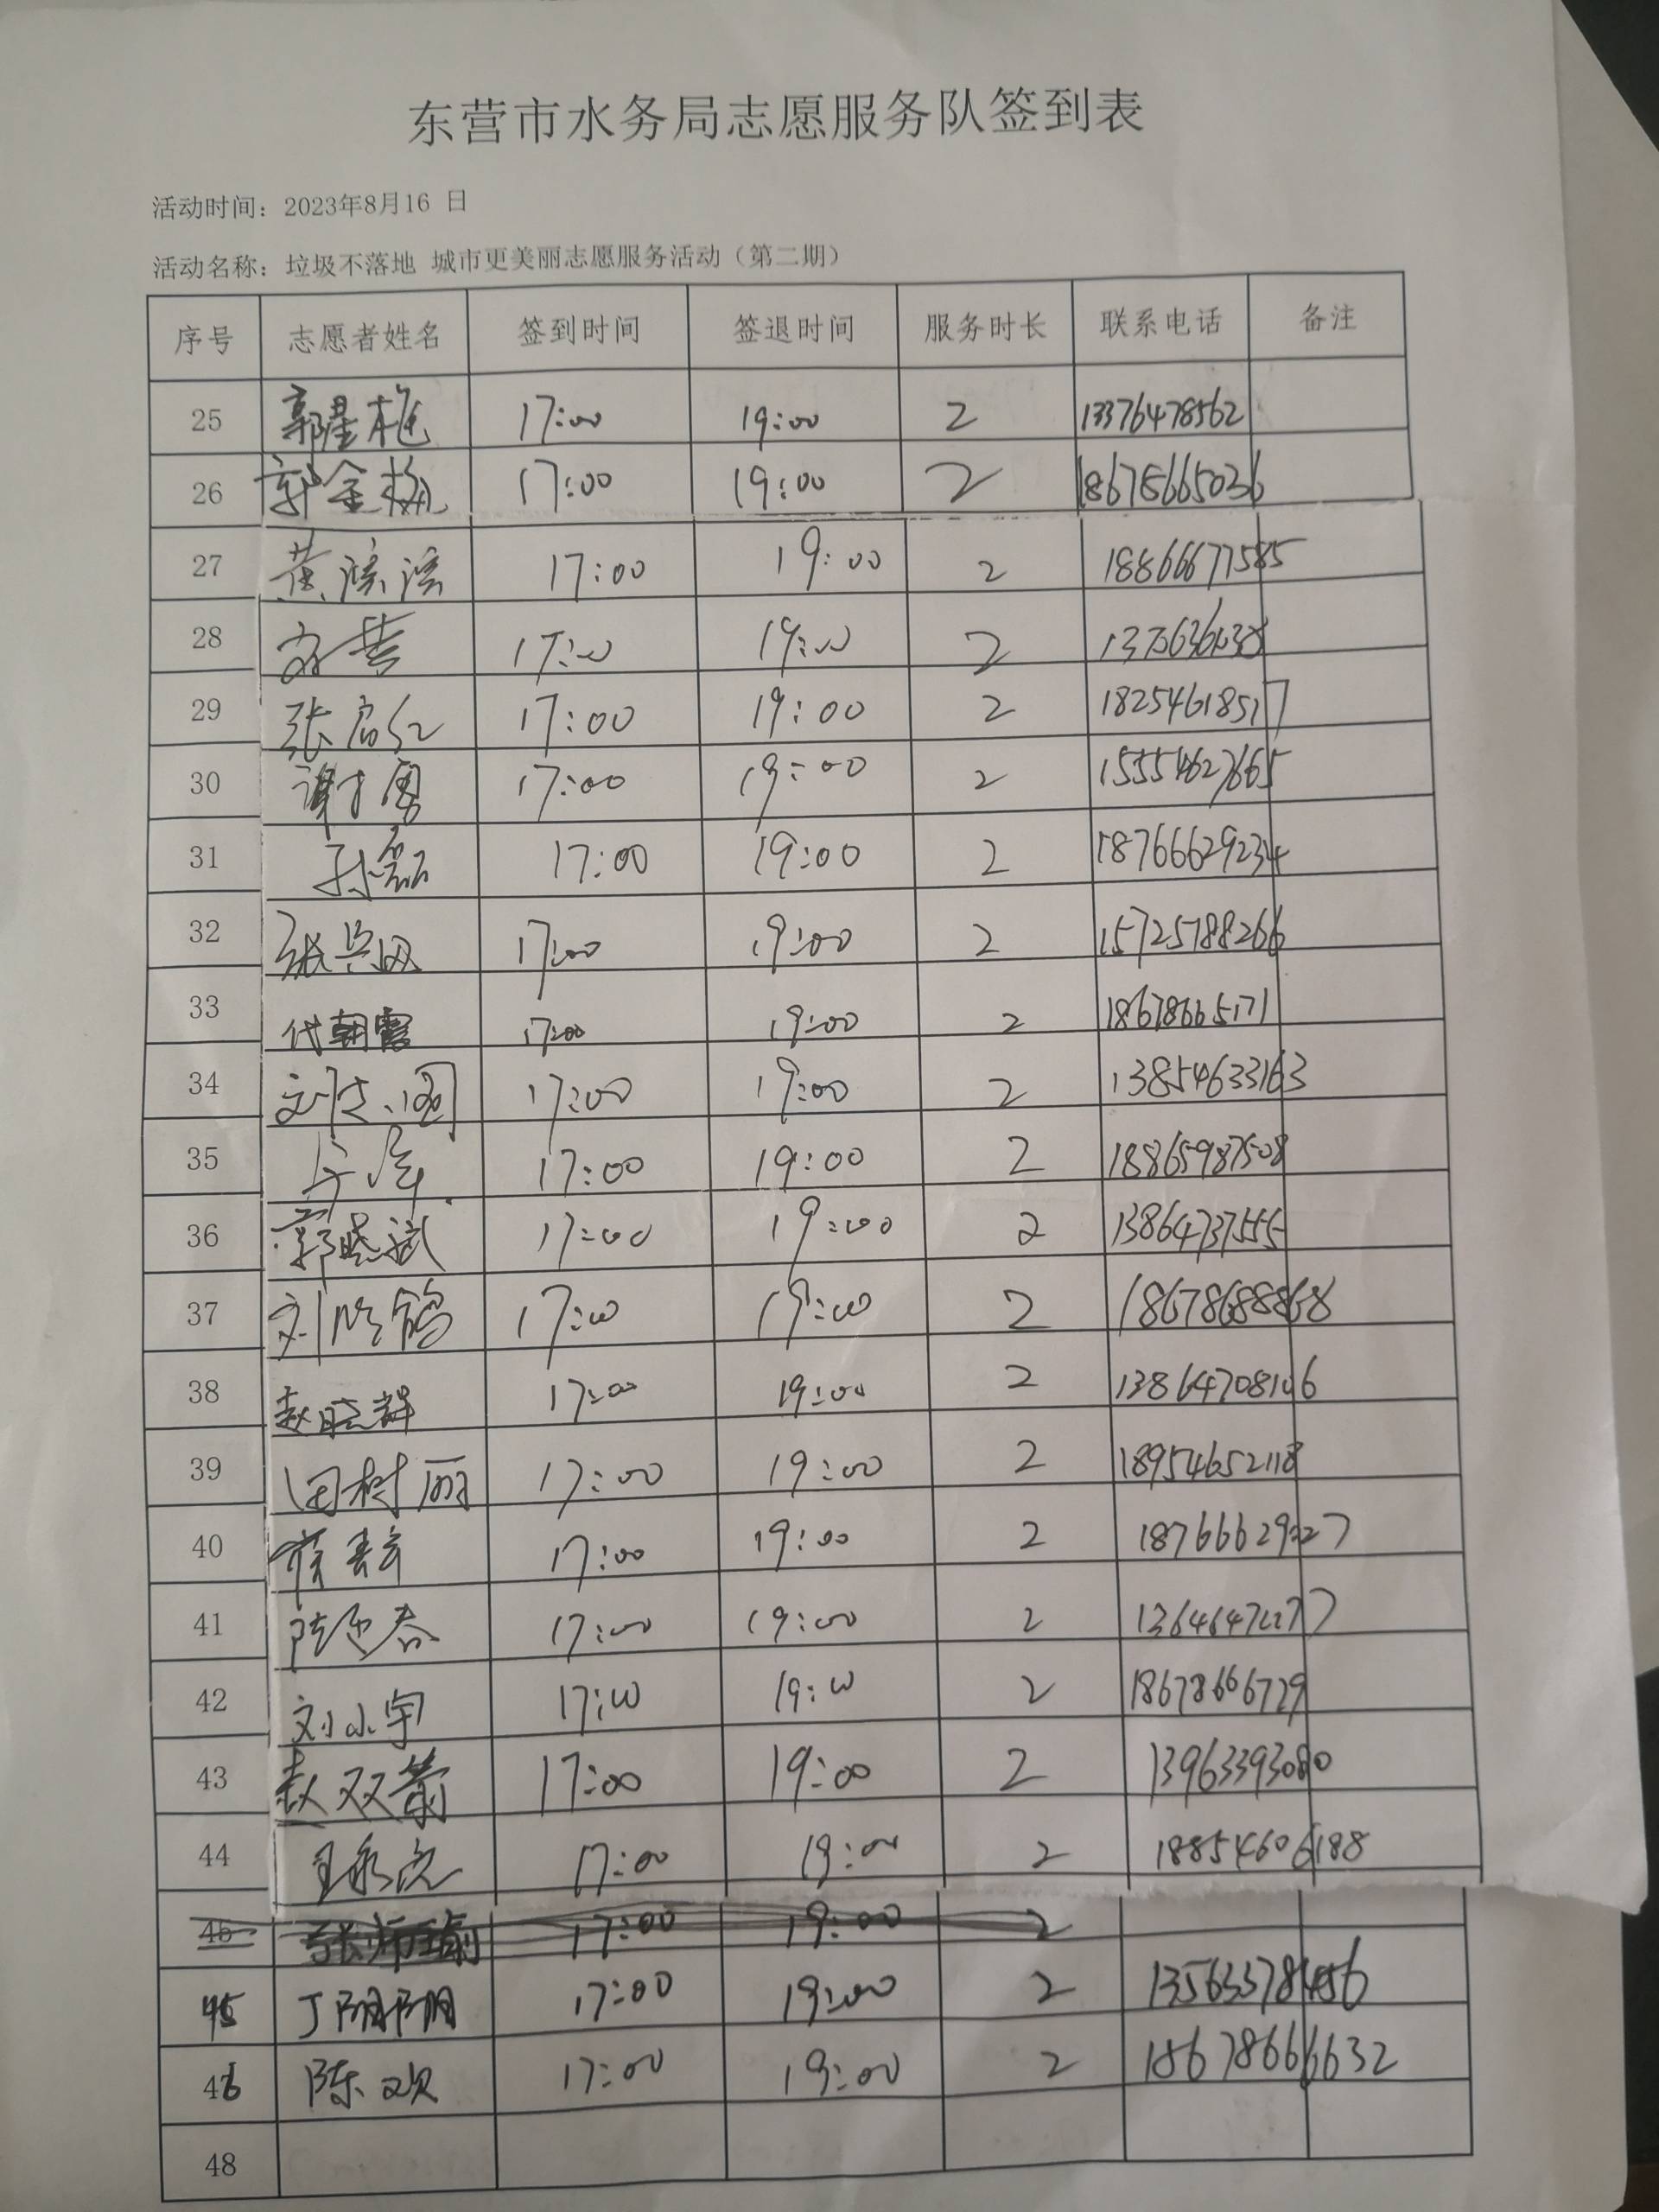 东营市水务局志愿服务队签到表
活动时间：2023年8月16 日
活动名称：垃圾不落地 城市更美丽志愿服务活动（第二期）
序号 志愿者姓名 签到时间 签退时间 服务时长 联系电话 备注
25 17:00 19:00 2 13376478562
26 郭金梅 17:00 19:00 2 18678665036
27 17:00 19:00 2 18866677585
28 17:00 19:00 2
29 17:00 19:00 2 18254618517
30 17:00 19:00 2 15554627665
31 孙磊 17:00 19:00 2 18766629234
32 17:00 19:00 2 15725788266
33 代朝霞 17:00 19:00 2 18678665171
34 17:00 19:00 2 13854633163
35 17:00 19:00 2 18865987508
36 郭晓斌 17:00 19:00 2 13864737555
37 17:00 19:00 2 18678688868
38 赵晓群 17:00 19:00 2 13864708106
39 田树丽 17:00 19:00 2 18954652118
40 17:00 19:00 2 18766629227
41 17:00 19:00 2
42 刘小宇 17:00 19:00 2 18678666729
43 赵双 17:00 19:00 2 13963393080
44 17:00 19:00 2 18854606188
17:00 19:00 2
45 丁阴阴 17:00 19:00 2
46 陈欢 17:00 19:00 2 18678666632
48